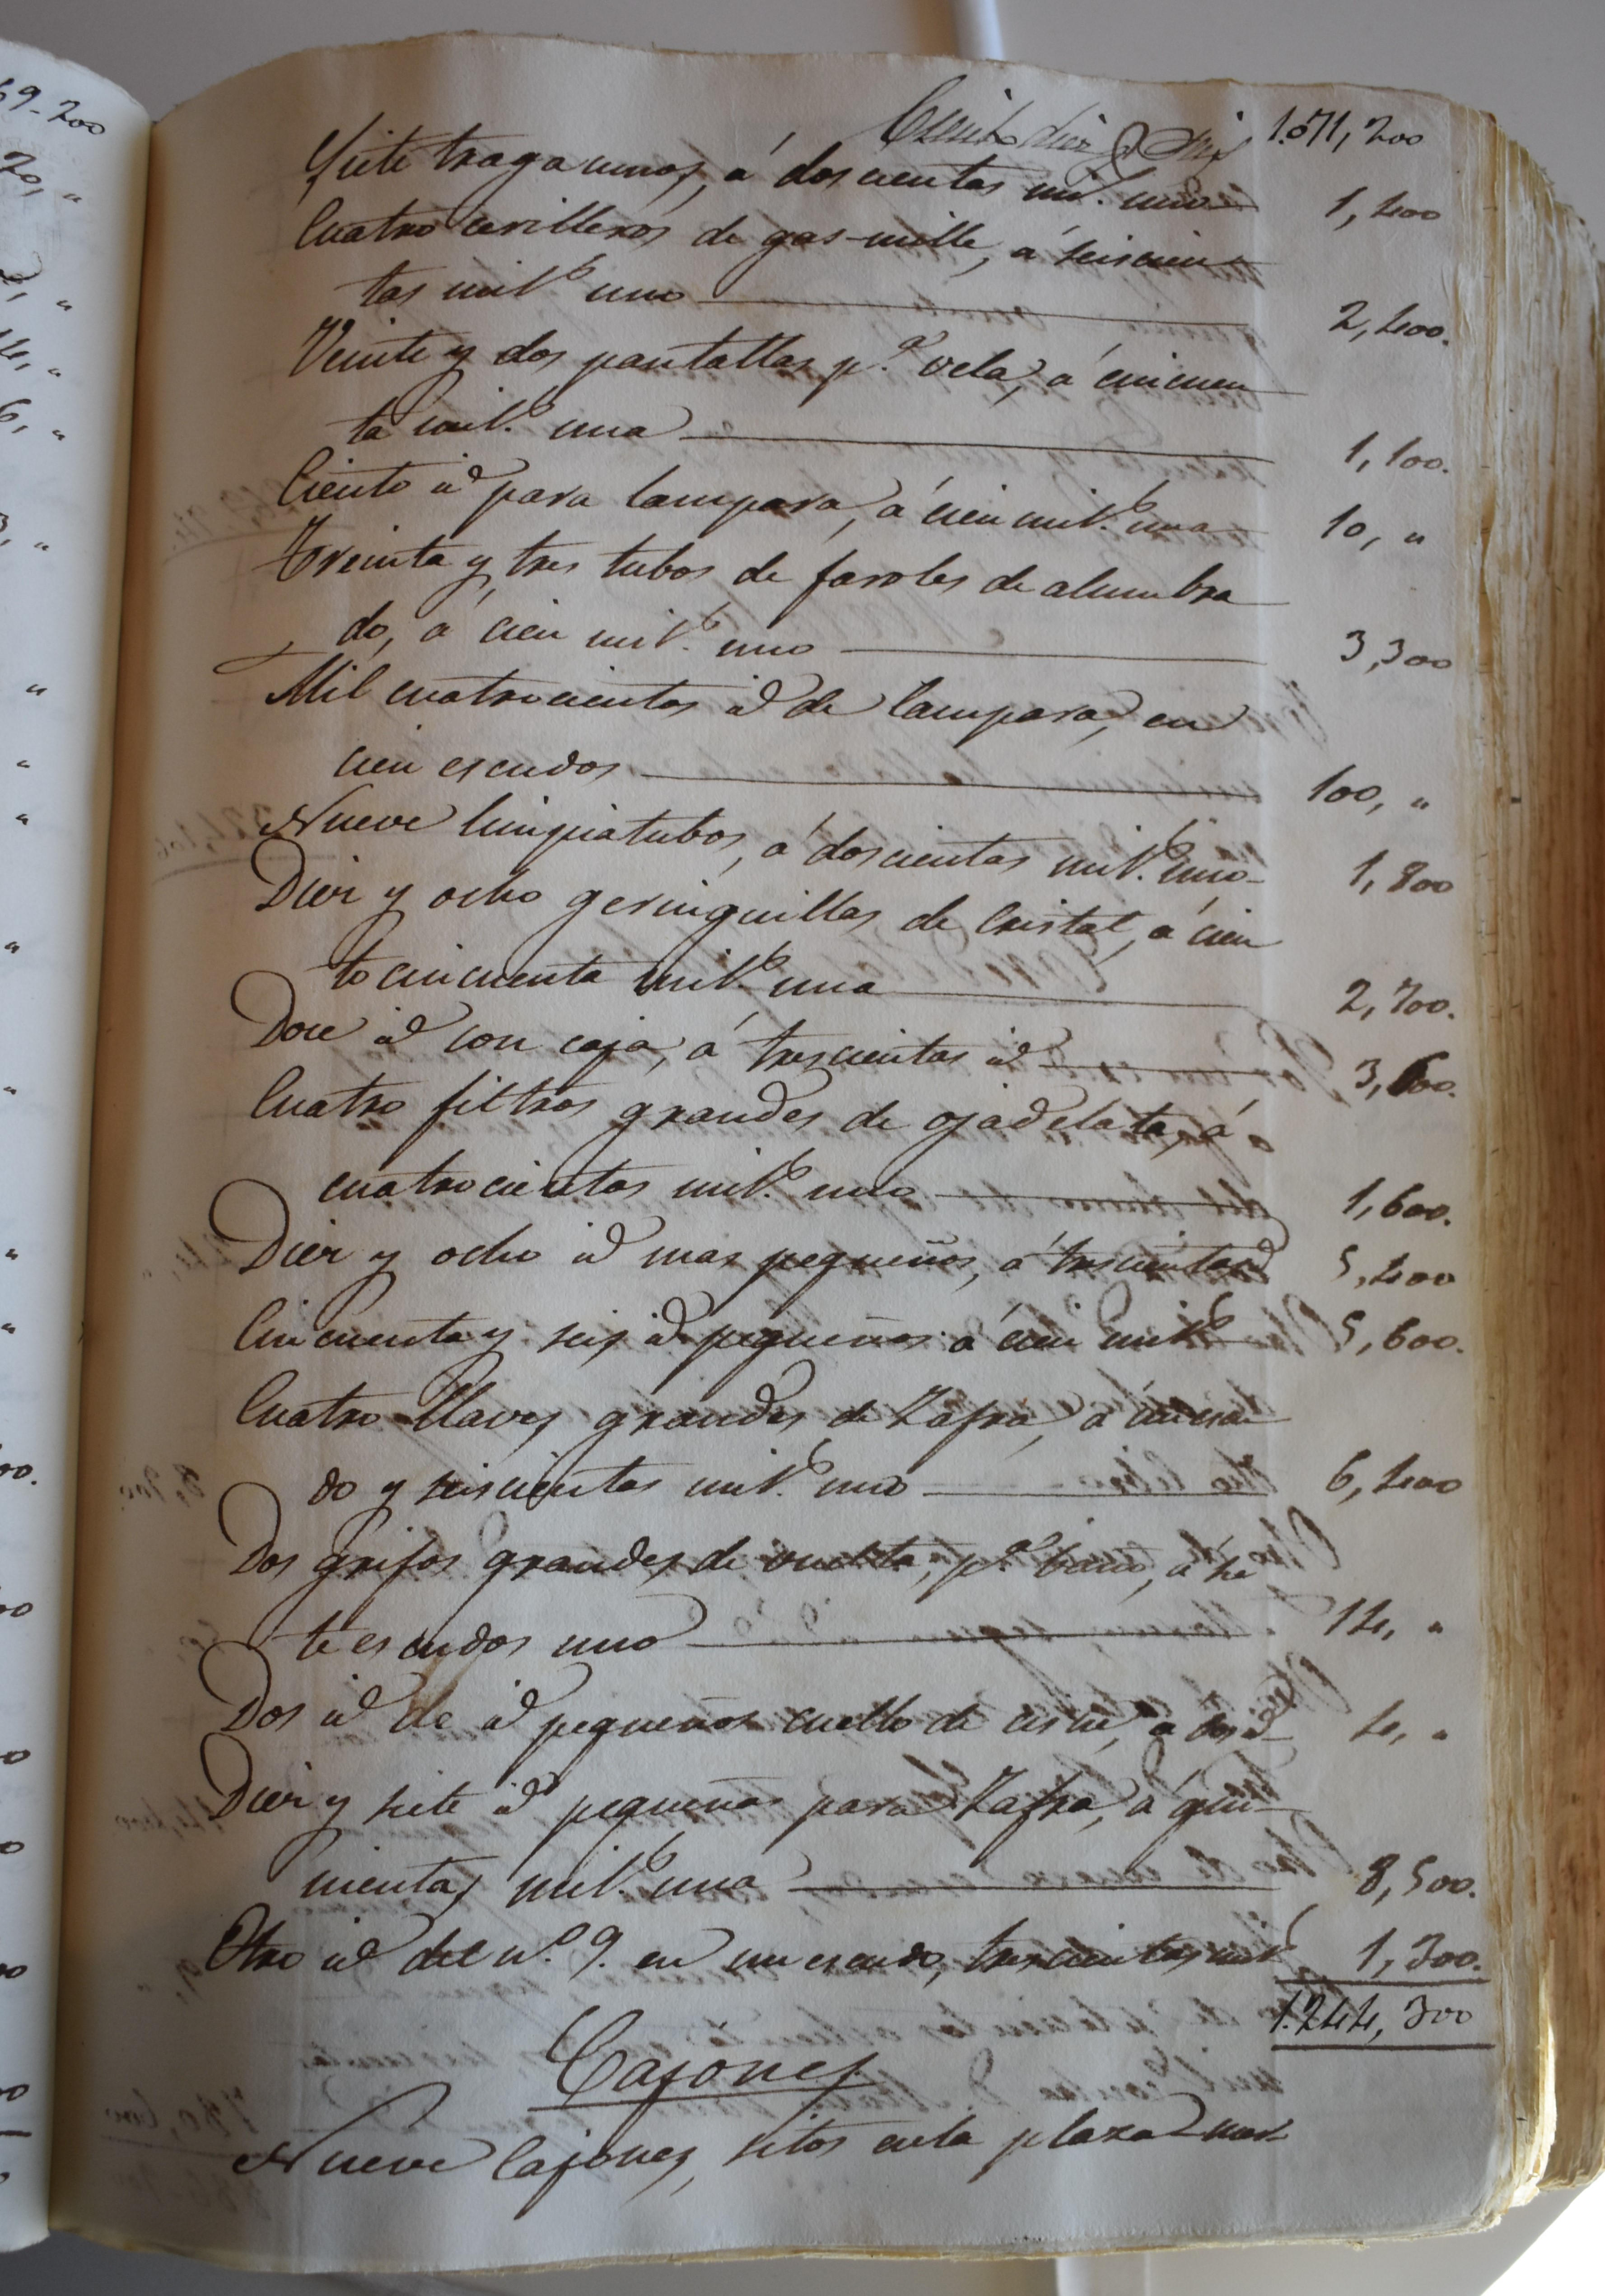 69-200
Ciento diez y seis 1.071,200
Siete tragaumos, á doscientas mil.s uno 1,400
Cuatro cerilleros de gas-mille, á seiscien
tas mil.s uno 2,400.
Veinte y dos pantallas p.a vela, á cincuen
ta mil.s una 1,100.
Ciento id para lampara, á cien mil.s una 10, "
Treinta y tres tubos de faroles de alumbra
do, á cien mil.s uno 3,300
Mil cuatrocientos id de lampara, en
cien escudos 100, "
Nueve limpiatubos, á doscientas mil.s uno 1,800
Diez y ocho geringuillas de Cristal, á cien
to cincuenta mil.s una 2,700.
Doce id con caja, á trescientas id 3,600.
Cuatro filtros grandes de ojadelata, á
cuatrocientas mil.s uno 1,600.
Diez y ocho id mas pequeños, á trescientas id 5,400
Cincuenta y seis id pequeños á cien mil.s 5,600.
Cuatro llaves grandes de Zafra, á un escu
do y seiscientas mil.s una 6,400
Dos grifos grandes de vuelta, p.a baño, á sie
te escudos uno 14, "
Dos id de id pequeños cuello de cisne, a dos id 4, "
Diez y siete id pequeños para Zafra, á qui-
nientas mil.s una 8,500.
Otro id del n.o 9. en un escudo, trescientas mil.s 1,300.
1.244,300
Cajones
Nueve Cajones, sitos enla plaza